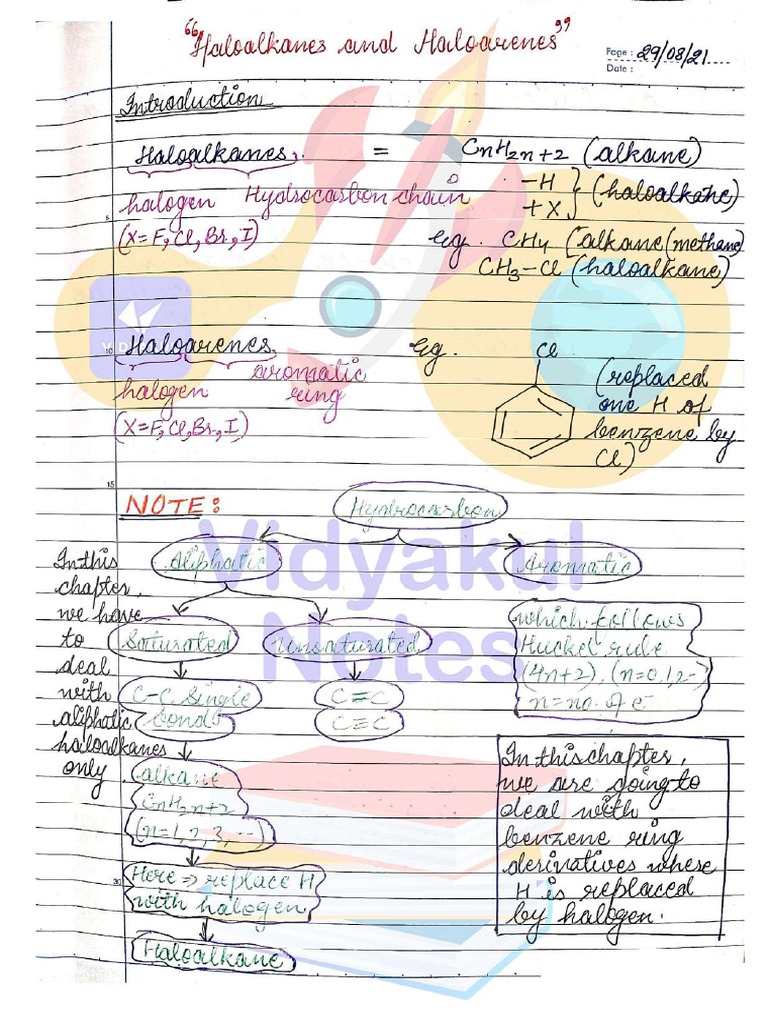 "Haloalkanes and Haloarenes"
Page : 29/08/21
Date :
Introduction
Haloalkanes. = CnH2n+2 (alkane)
halogen Hydrocarbon chain
-H
+X } (haloalkane)
(X=F, Cl, Br, I)
eg. CH4 (alkane (methane)
CH3-Cl (haloalkane)
5
10
Haloarenes
halogen aromatic
ring
(X=F, Cl, Br, I)
eg.
Cl
(replaced
one H of
benzene by
Cl)
15
NOTE:
Hydrocarbon
Aliphatic
Aromatic
In this
chapter,
we have
to
deal
with
aliphatic
haloalkanes
only.
Saturated
Unsaturated
C-C Single
bonds
C=C
C≡C
alkane
CnH2n+2
(n=1,2,3,--)
30
Here ⇒ replace H
with halogen
Haloalkane
which follows
Huckel rule
(4n+2), (n=0,1,2--)
n=no. of e-
In this chapter,
we are going to
deal with
benzene ring
derivatives where
H is replaced
by halogen.
Vidyakul
Notes